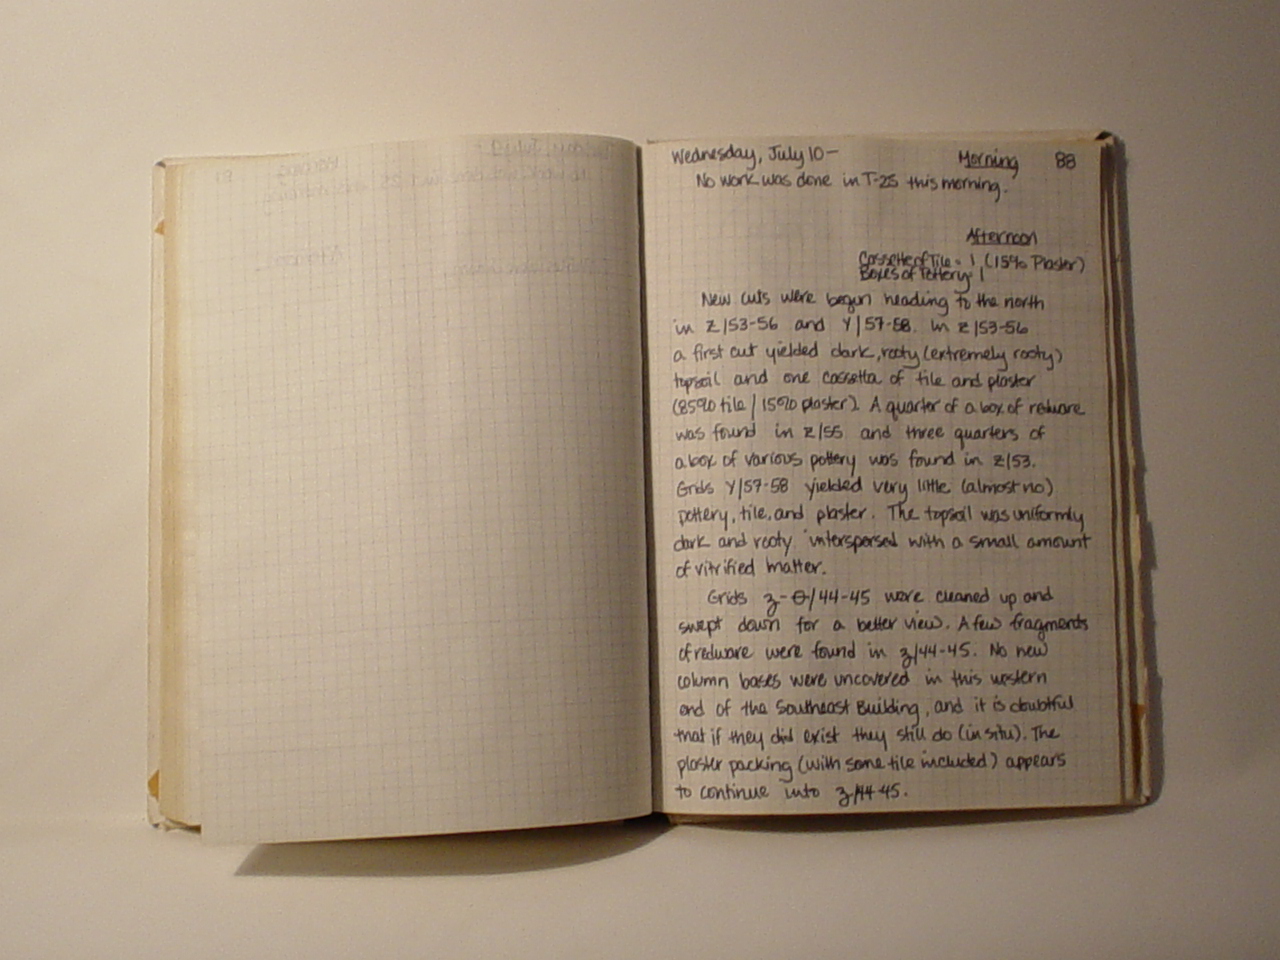 Wednesday, July 10— Morning 88
No work was done in T-25 this morning.
Afternoon
Cassette of Tile = 1 (15% Plaster)
Boxes of Pottery = 1
New cuts were begun heading to the north
in Z/53-56 and Y/57-58. In Z/53-56
a first cut yielded dark, rooty (extremely rooty)
topsoil and one cassetta of tile and plaster
(85% tile / 15% plaster). A quarter of a box of redware
was found in Z/55 and three quarters of
a box of various pottery was found in Z/53.
Grids Y/57-58 yielded very little (almost no)
pottery, tile, and plaster. The topsoil was uniformly
dark and rooty interspersed with a small amount
of vitrified matter.
Grids z-θ/44-45 were cleaned up and
swept down for a better view. A few fragments
of redware were found in z/44-45. No new
column bases were uncovered in this western
end of the Southeast Building, and it is doubtful
that if they did exist they still do (in situ). The
plaster packing (with some tile included) appears
to continue into z/44-45.